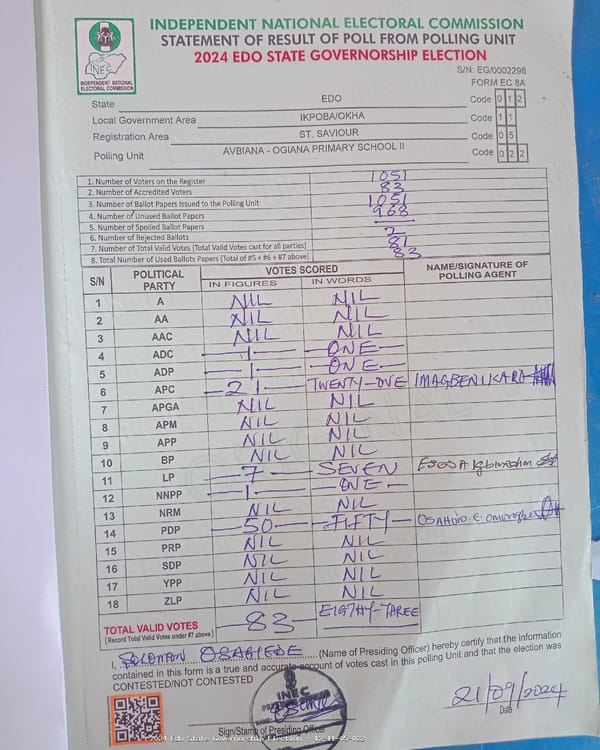 INDEPENDENT NATIONAL ELECTORAL COMMISSION
STATEMENT OF RESULT OF POLL FROM POLLING UNIT
2024 EDO STATE GOVERNORSHIP ELECTION
INEC
INDEPENDENT NATIONAL
ELECTORAL COMMISSION
S/N: EG/0002298
FORM EC 8A
State EDO Code 0 1 2
Local Government Area IKPOBA/OKHA Code 1 1
Registration Area ST. SAVIOUR Code 0 5
Polling Unit AVBIANA - OGIANA PRIMARY SCHOOL II Code 0 2 2
1. Number of Voters on the Register 1051
2. Number of Accredited Voters 83
3. Number of Ballot Papers Issued to the Polling Unit 1051
4. Number of Unused Ballot Papers 968
5. Number of Spoiled Ballot Papers —
6. Number of Rejected Ballots 2
7. Number of Total Valid Votes (Total Valid Votes cast for all parties) 81
8. Total Number of Used Ballots Papers (Total of #5 + #6 + #7 above) 83
S/N POLITICAL PARTY VOTES SCORED NAME/SIGNATURE OF POLLING AGENT
IN FIGURES IN WORDS
1 A NIL NIL
2 AA NIL NIL
3 AAC NIL NIL
4 ADC —1— —ONE—
5 ADP —1— —ONE—
6 APC —21— TWENTY-ONE IMAGBENIKARO
7 APGA NIL NIL
8 APM NIL NIL
9 APP NIL NIL
10 BP NIL NIL
11 LP —7— SEVEN
12 NNPP —1— —ONE—
13 NRM NIL NIL
14 PDP —50— —FIFTY—
15 PRP NIL NIL
16 SDP NIL NIL
17 YPP NIL NIL
18 ZLP NIL NIL
TOTAL VALID VOTES —83— EIGTHY-THREE
(Record Total Valid Votes under #7 above)
I, SOLOMON OSAGIEDE (Name of Presiding Officer) hereby certify that the information
contained in this form is a true and accurate account of votes cast in this polling Unit and that the election was
CONTESTED/NOT CONTESTED
INEC
21/09/2024
Date
Sign/Stamp of Presiding Officer
2024 Edo State Governorship Election - 12-11-05-022